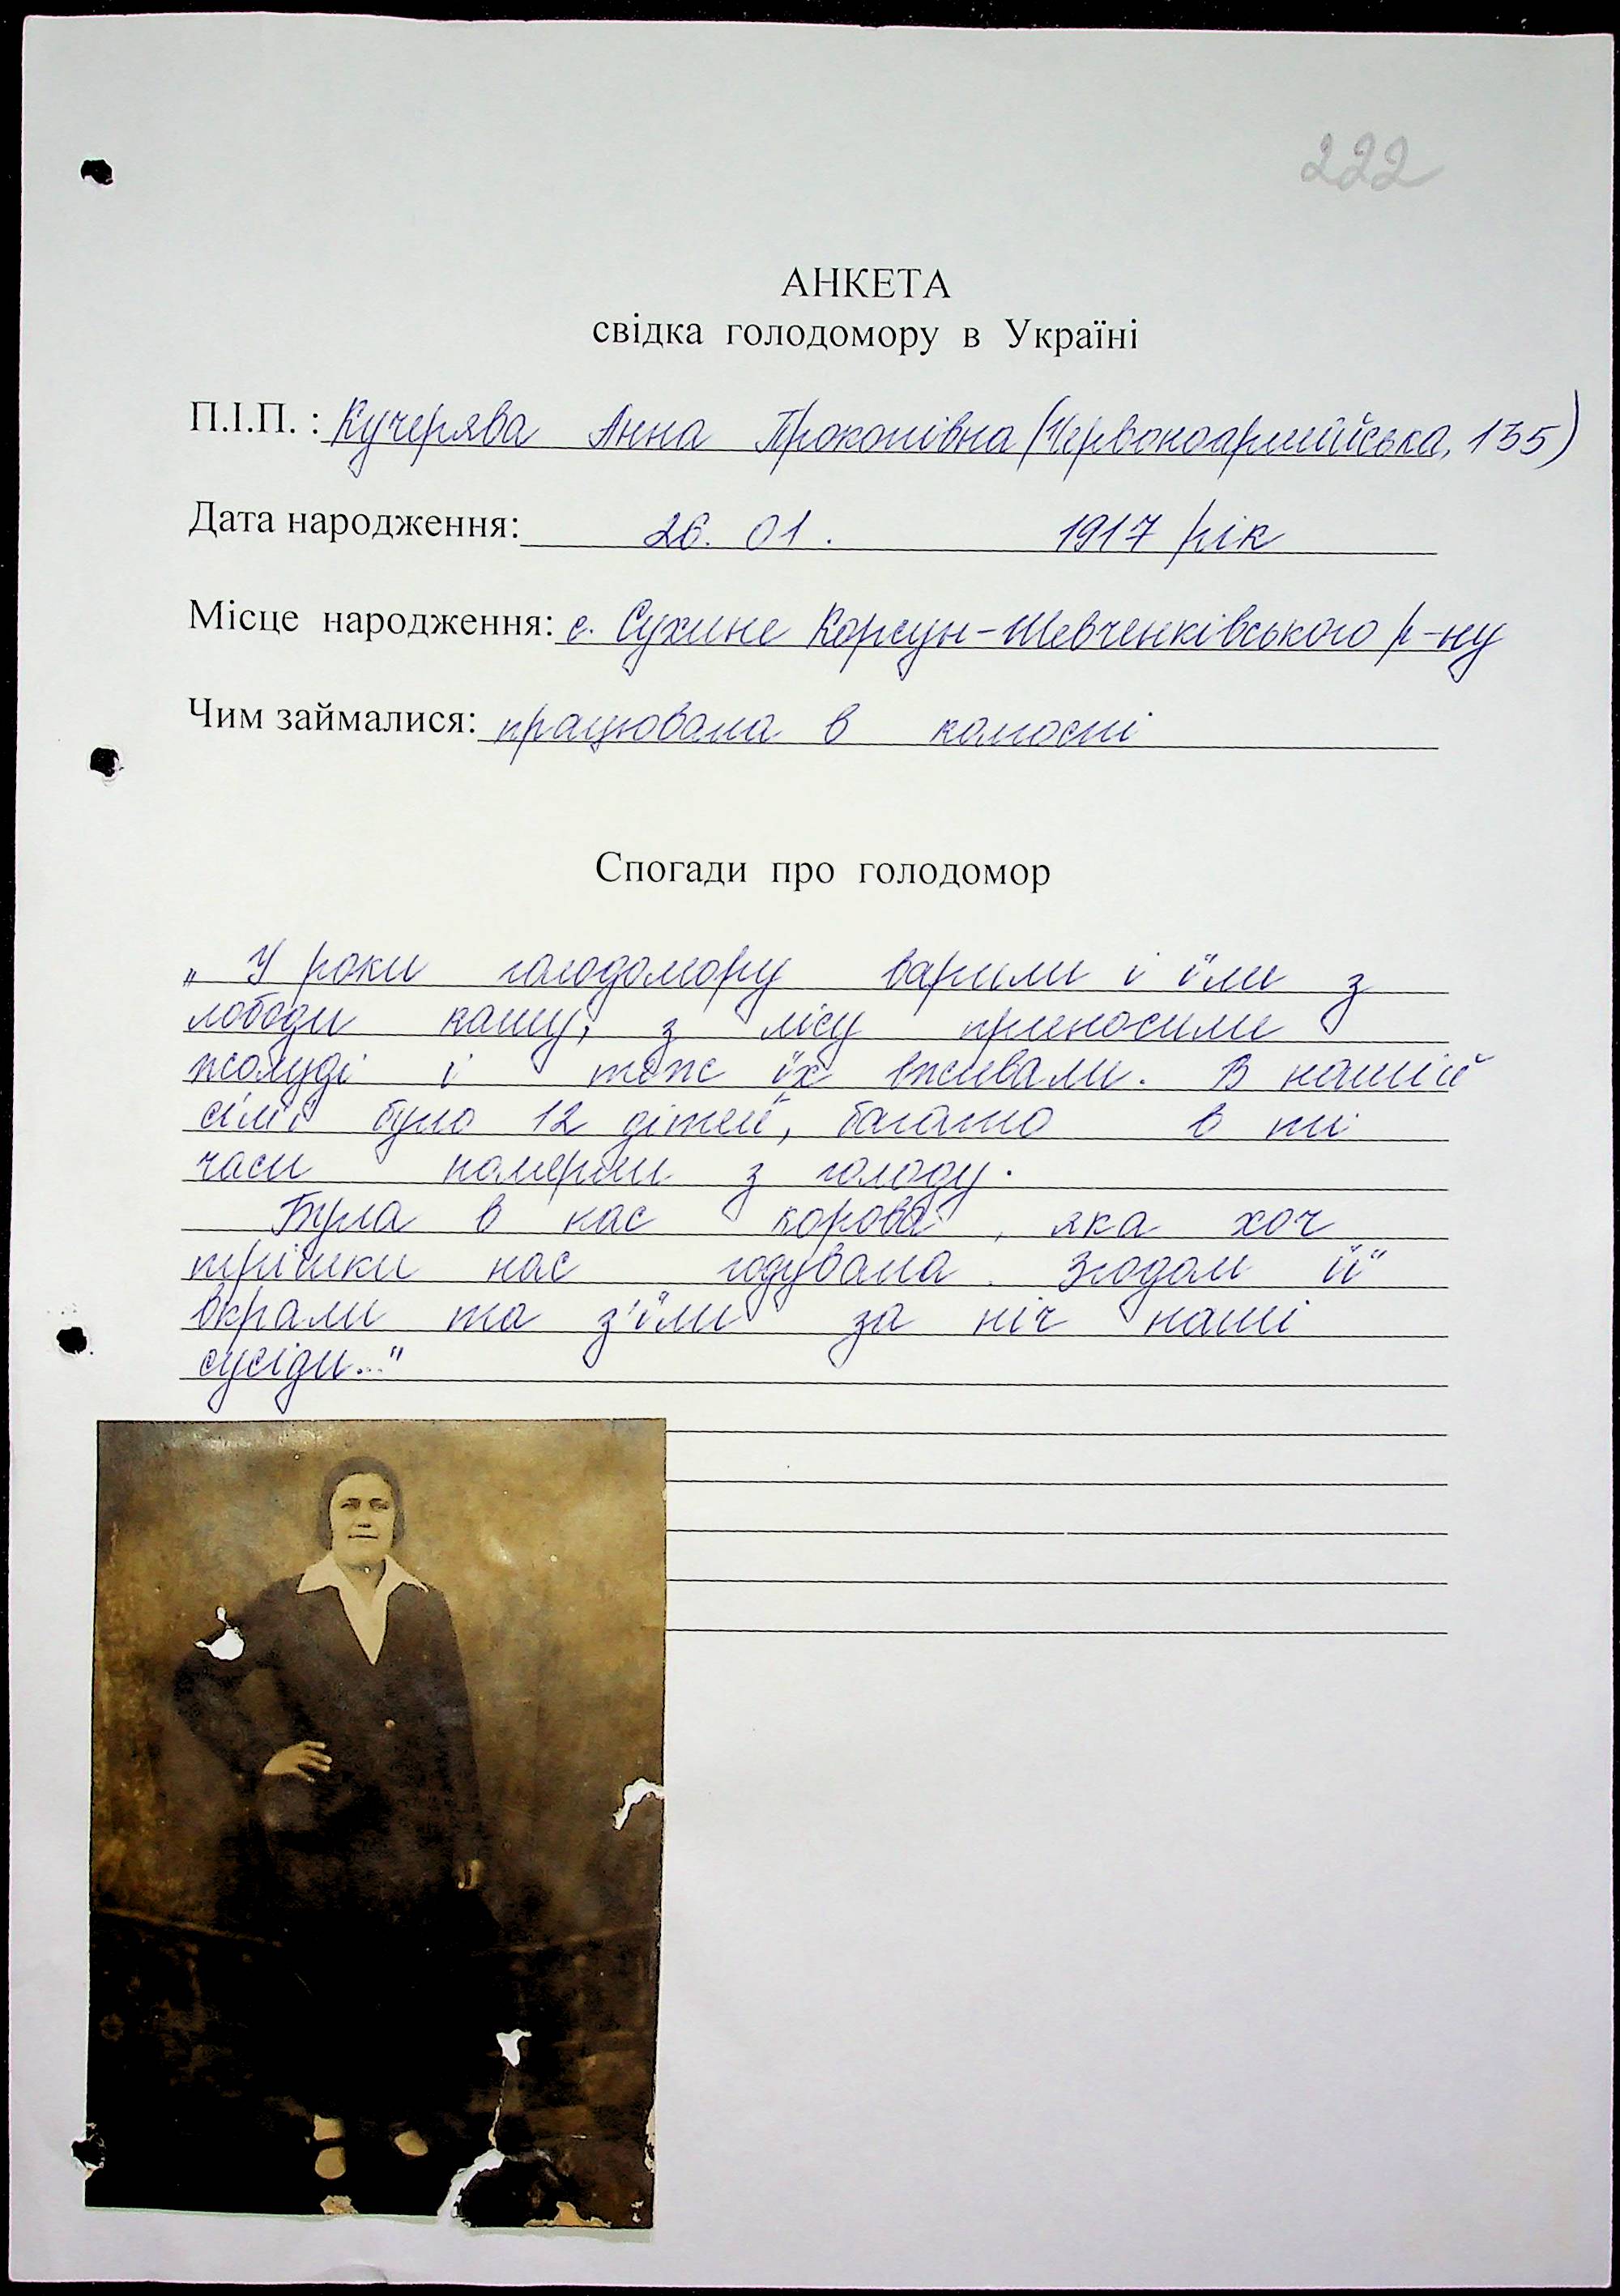 222
АНКЕТА
свідка голодомору в Україні
П.І.П. : Кучерява Анна Прокопівна (Червоноармійська, 135)
Дата народження: 26. 01. 1917 рік
Місце народження: с. Сухине Корсун-Шевченківського р-ну
Чим займалися: працювала в колгоспі
Спогади про голодомор
„У роки голодомору варили і їли з
лободи кашу; з лісу приносили
жолуді і теж їх вживали. В нашій
сім'ї було 12 дітей, багато в ті
часи померли з голоду.
Була в нас корова, яка хоч
трішки нас годувала. Згодом її
вкрали та з'їли за ніч наші
сусіди..."